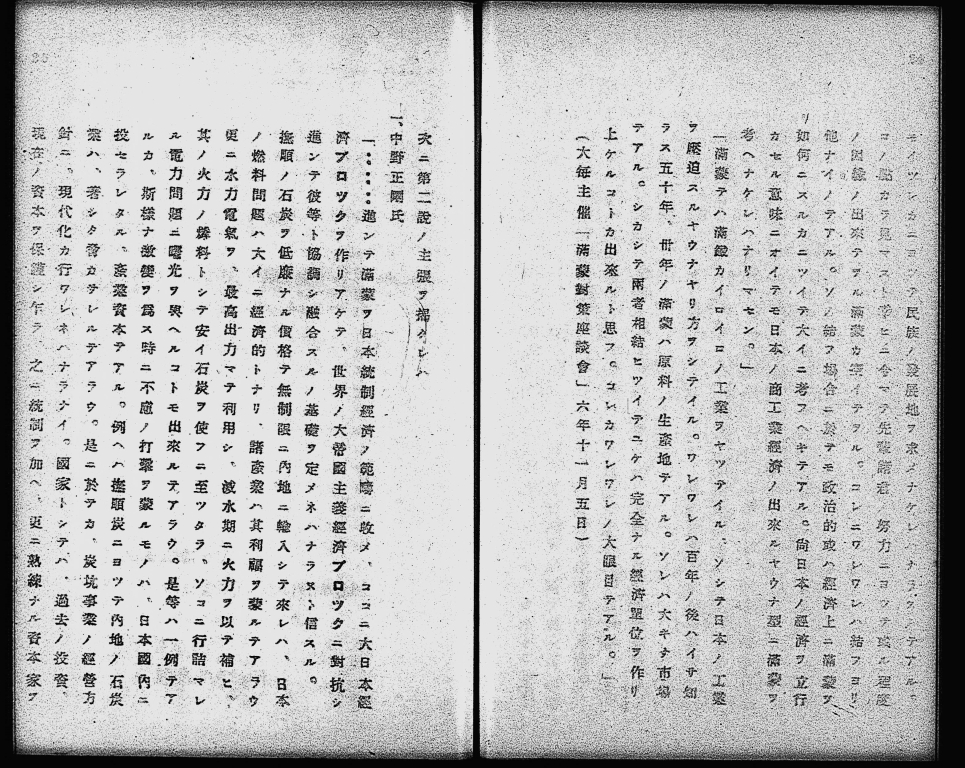 民族ノ發展地ヲ求メナケレ
コノ點カラ見マスト 今マテ先輩諸君ノ努力ニヨツテ或ル程度
ノ因縁ノ出來テヲル滿蒙カ空イテヲル。コレニワレワレハ結フヨリ
他ナイノテアル。ソノ結フ場合ニ於テモ政治的或ハ經濟上ニ滿蒙ヲ
如何ニスルカニツイテ大イニ考フヘキテアル。尙日本ノ經濟ヲ立行
カセル意味ニオイテモ日本ノ商工業經濟ノ出來ルヤウナ型ニ滿蒙ヲ
考ヘナケレハナリマセン。」
「滿蒙テハ滿鐵カイロイロノ工業ヲヤツテイル、ソシテ日本ノ工業
ヲ壓迫スルヤウナヤリ方ヲシテイル。ワレワレハ百年ノ後ハイサ知
ラス五十年、丗年ノ滿蒙ハ原料ノ生產地テアル。ソレハ大キナ市場
テアル。シカシテ兩者相結ヒツイテユケハ完全ナル經濟單位ヲ作リ
上ケルコトカ出來ルト思フ。コレカワレワレノ大眼目テアル。」
(大每主催「滿蒙對策座談會」六年十一月五日)
24
次ニ第二說ノ主張ヲ揭クレハ
一、中野正剛氏、
「・・・・・・進ンテ滿蒙ヲ日本統制經濟ノ範疇ニ收メ、ココニ大日本經
濟ブロツクヲ作リアケテ、世界ノ大帝國主義經濟ブロツクニ對抗シ
進ンテ彼等ト協調シ融合スルノ基礎ヲ定メネハナラスト信スル。
撫順ノ石炭ヲ低廉ナル價格テ無制限ニ內地ニ輸入シテ來レハ、日本
ノ燃料問題ハ大イニ經濟的トナリ、諸產業ハ其利福ヲ蒙ルテアラウ
更ニ水力電氣ヲ、最高出力マテ利用シ、渴水期ニ火力ヲ以テ補ヒ、
其ノ火力ノ燃料トシテ安イ石炭ヲ使フニ至ツタラ、ソコニ行詰マレ
ル電力問題ニ曙光ヲ與ヘルコトモ出來ルテアラウ。是等ハ一例テア
ルカ、斯樣ナ激變ヲ爲ス時ニ不慮ノ打擊ヲ蒙ルモノハ、日本國內ニ
投セラレタル、產業資本テアル。例ヘハ撫順炭ニヨツテ內地ノ石炭
業ハ、著シク脅カサレルテアラウ。是ニ於テカ、炭坑事業ノ經營方
針ニ、現代化カ行ワレネハナラナイ。國家トシテハ、過去ノ投資、
現在ノ資本ヲ保護シ乍ラ、之ニ統制ヲ加ヘ、更ニ熟練ナル資本家ヲ
25